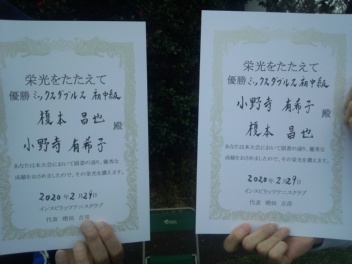 栄光をたたえて
優勝 ミックスダブルス 初中級
榎本 昌也
小野寺 有希子
殿
あなたは本大会において頭書の通り、優秀な
成績をおさめましたので、その栄光を讃えます。
2020年2月29日
インスピリッツテニスクラブ
代表
栄光をたたえて
優勝 ミックスダブルス 初中級
小野寺 有希子
榎本 昌也
殿
あなたは本大会において頭書の通り、優秀な
成績をおさめましたので、その栄光を讃えます。
2020年2月29日
インスピリッツテニスクラブ
代表